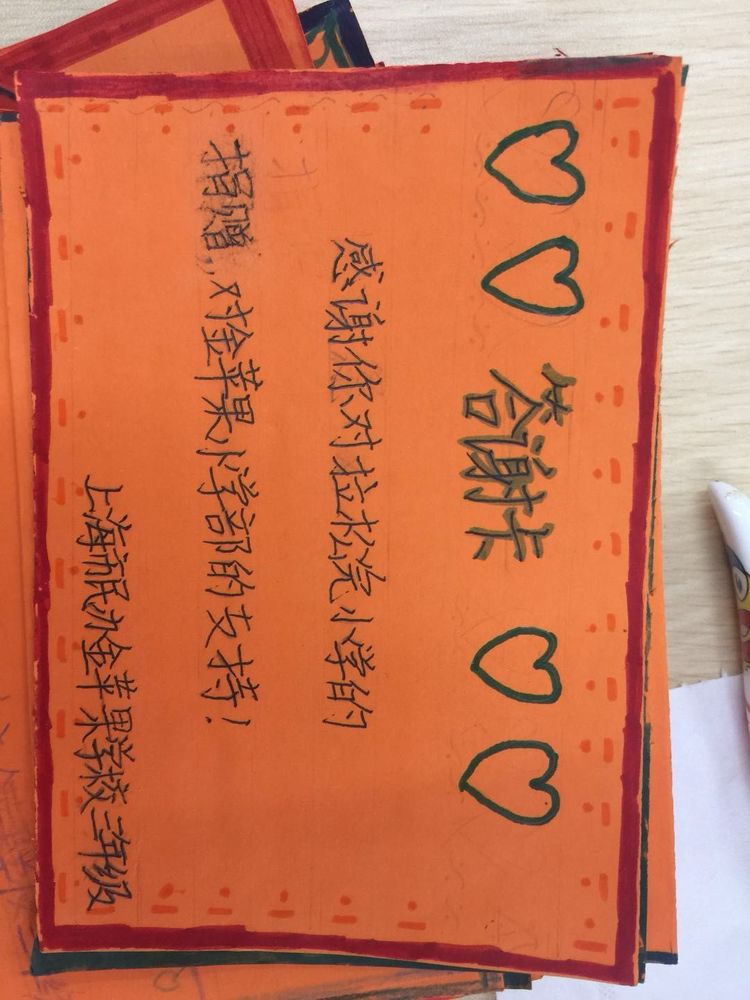 答谢卡
感谢你对拉松浣小学的
捐赠,对金苹果小学部的支持!
上海市民办金苹果学校三年级